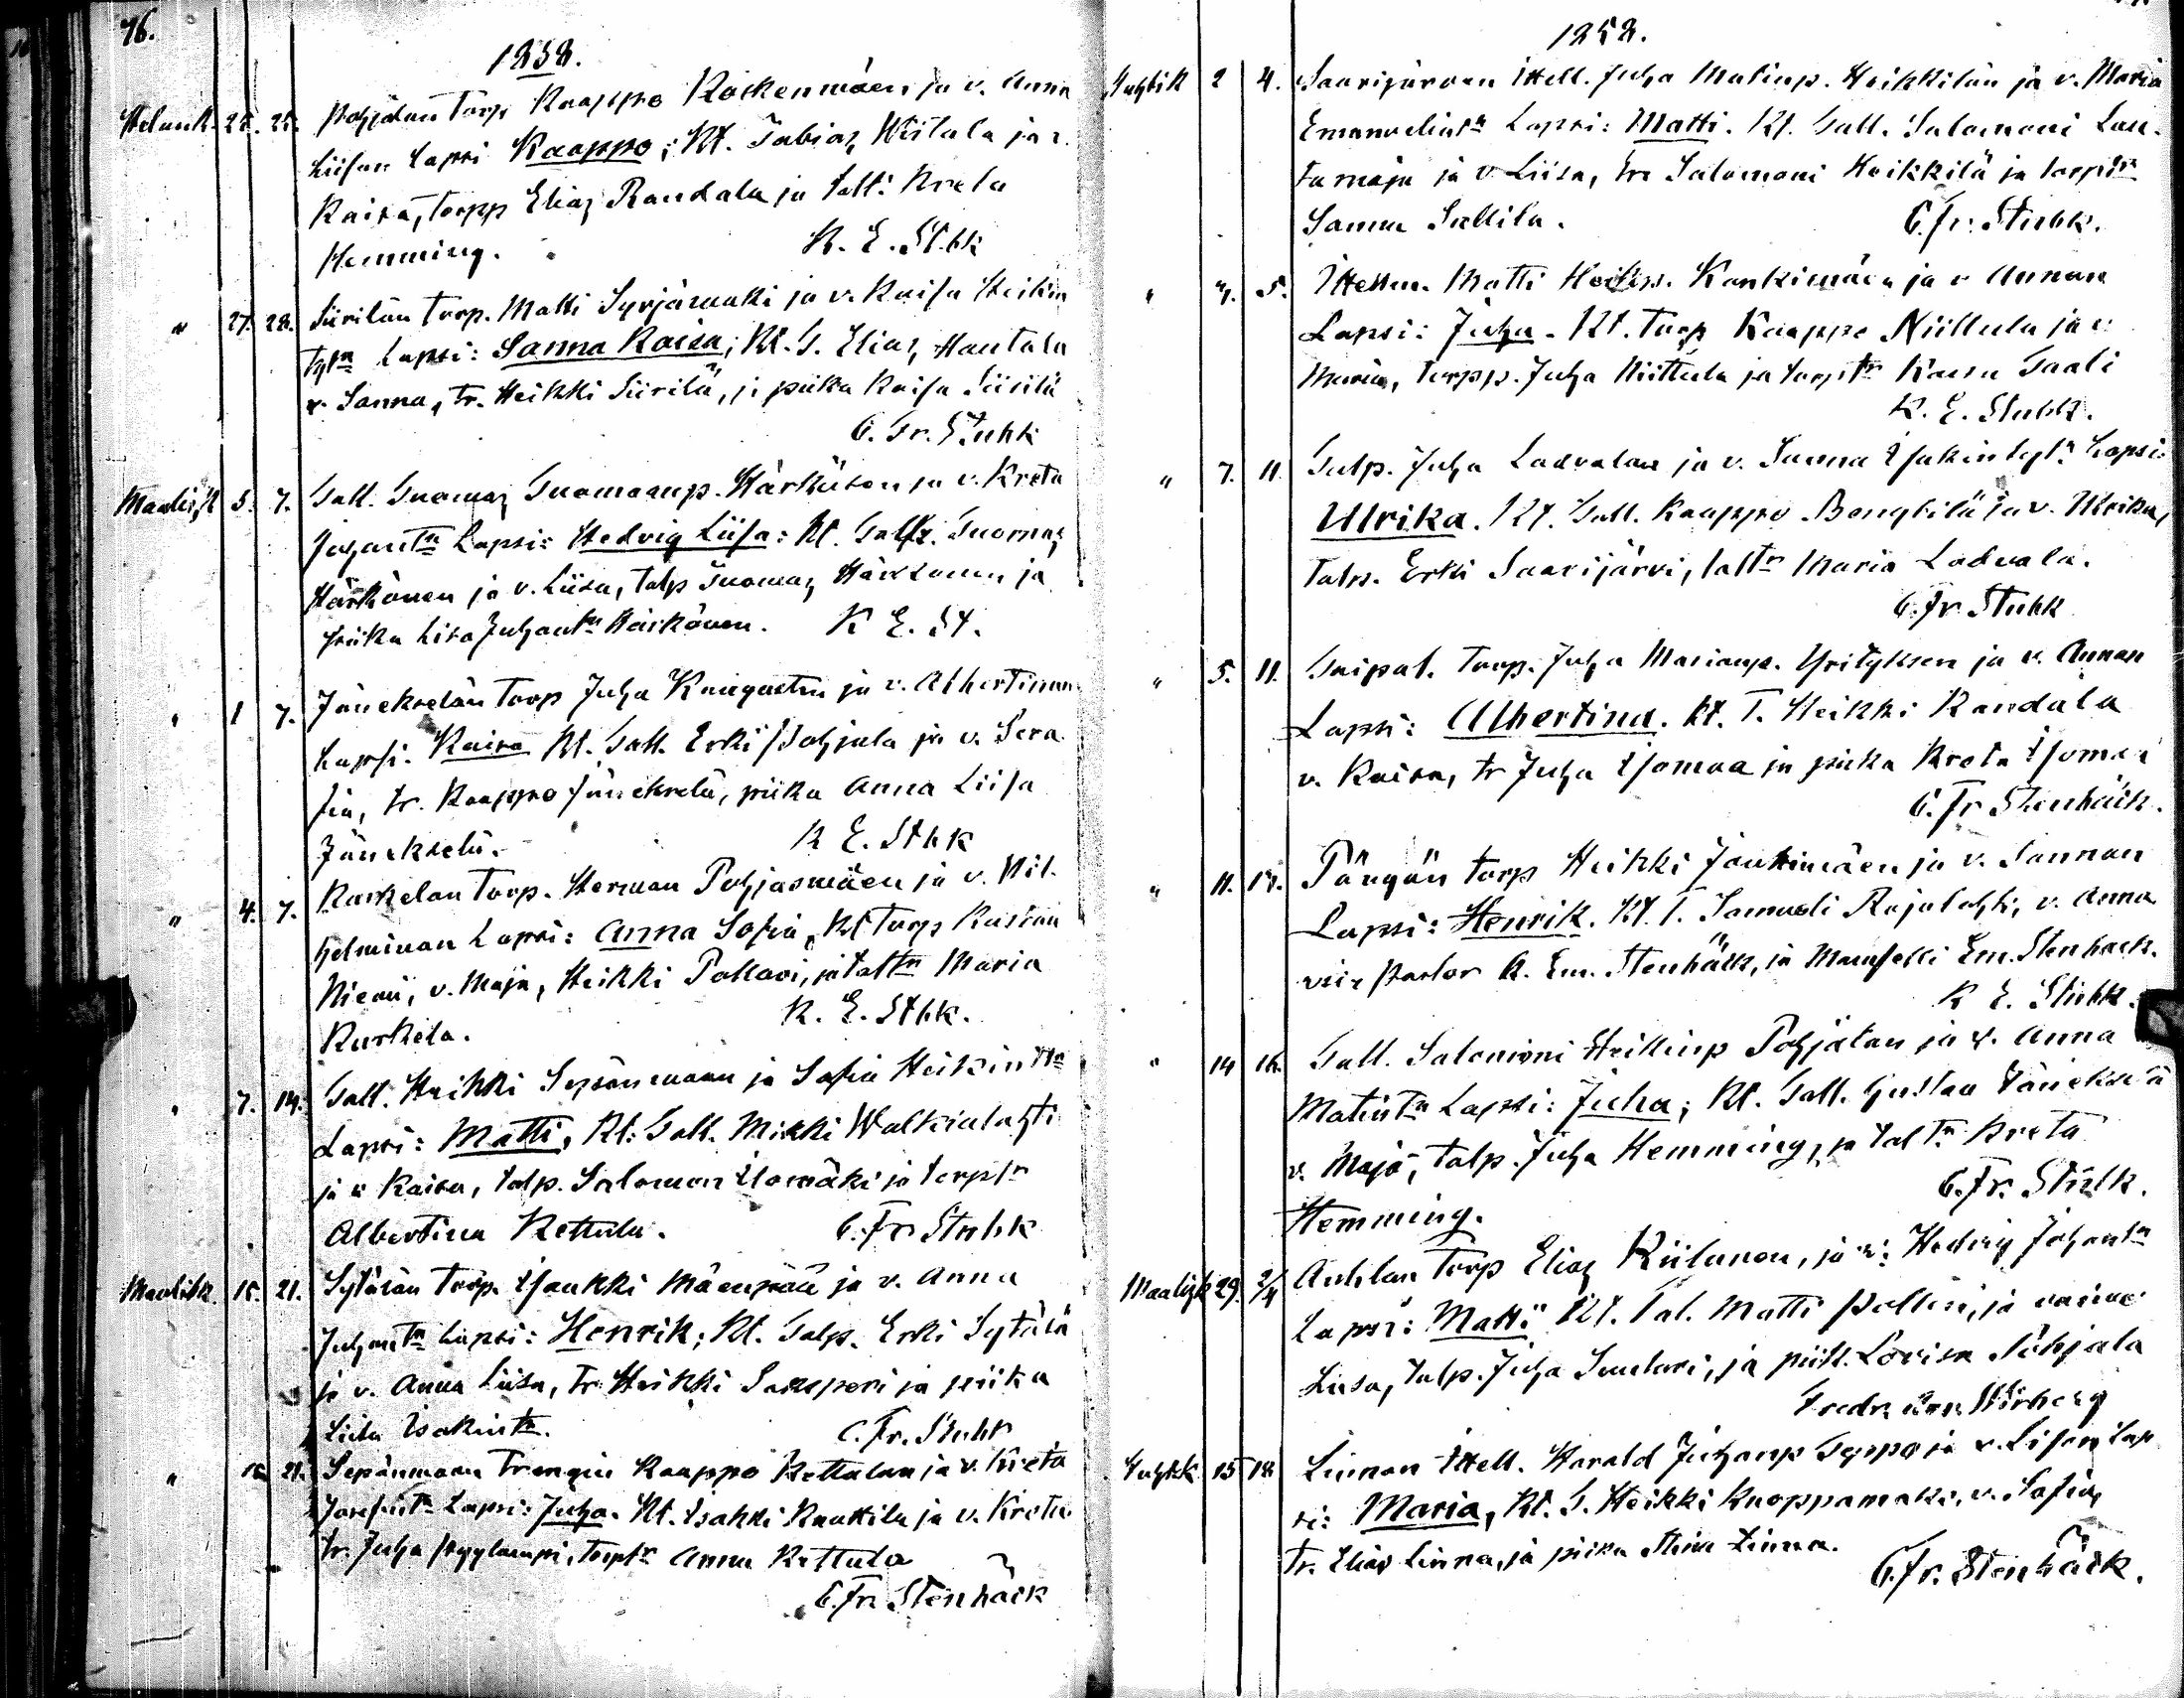 76.
1858.
Helmik. 25. 25. Pohjalan Torp. Kaappo Koskenmäen ja v. Anna
Liisan Lapsi Kaappo; Kt. Tobias Wiitala ja v.
Kaisa, torpp Elias Randala ja talt. Kreta
Hemming. K. E. St.bk
" 27. 28. Siirilän torp. Matti Syrjämäki ja v. Kaisa Heikin
tytn Lapsi: Sanna Kaisa; Kt. T. Elias Hautala
v. Sanna, tr. Heikki Siirilä, ja piika Kaisa Siirilä
C. Fr. Stnbk
Maalisk 5. 7. Tall. Tuomas Tuomaanp. Härkösen ja v. Kreta
Juhantn Lapsi: Hedvig Liisa: Kt. Tuomas
Härkönen ja v. Liisa, talp Tuomas Härkönen ja
piika Lisa Juhantn Härkönen. K E. St.
" 1 7. Jänekselän torp Juha Kangastn ja v. Albertinan
Lapsi. Kaisa Kt. Tall. Erki Pohjala ja v. Sera
fia, tr. Kaappo Jäneksela, piika Anna Liisa
Jäneksela. K E. Stbk
" 4. 7. Kurkelan torp. Herman Pohjasmäen ja v. Wil-
helminan Lapsi: Anna Sofia, Kt torp Kustaa
Niemi, v. Maja, Heikki Pollari, ja taltn Maria
Kurkela. K. E. Stbk.
" 7. 14. Tall. Heikki Sepänmaan ja Sofia Heikintn
Lapsi: Matti, Kt: Tall. Mikki Walkialahti
ja v Kaisa, talp. Salomon Ilomäki ja torptr
Albertina Kettula. C. Fr. Stnbk
Maalisk. 15. 21. Sytälän torp. Isaukki Mäenpään ja v. Anna
Juhantn Lapsi: Henrik; Kt. Talp. Erki Sytälä
ja v. Anna Liisa, tr. Heikki Kasperi ja piika
Liisa Isakintr. C. Fr. Stnbk
" 21. Sepänmaan trengin Kaappo Kettulan ja v. Kreta
Josefintn Lapsi: Juha. Kt. Isakki Knuttila ja v. Kreta
tr. Juha torptr Anna Kettula
C. Fr. Stenbäck
1858.
Huhtik 2 4. Saarijärven Ittell. Juha Matinp. Heikkilän ja v. Maria
Emanuelintn Lapsi: Matti. Kt. Tall. Salomoni Lau-
tamaja ja v Liisa, tr. Salomoni Heikkilä ja torptr
Sanna Sillila. C. Fr. Stnbk.
" 4. 5. Ittelln. Matti Heikinp. Kankimäen ja v Annan
Lapsi: Juha. Kt. torp Kaappo Niittula ja v.
Maria, torpp. Juha Niittula ja torptr Kaisa Saali
K. E. Stnbk.
" 7. 11. Talp. Juha Ladvalan ja v. Sanna Isakintytn Lapsi:
Ulrika. Kt. Tall. Kaappo Bengtilä ja v. Ulrika,
talp. Erki Saarijärvi, taltr Maria Ladvala.
C. Fr Stnbk
" 5. 11. Saipal. torp. Juha Marianp. Yrityksen ja v. Annan
Lapsi: Albertina. Kt. T. Heikki Randala
v. Kaisa, tr Juha Isomaa ja piika Kreta Isomaa
C. Fr Stenbäck.
" 11. 18. Pängän torp Heikki Jouttimäen ja v. Sannan
Lapsi: Henrik. Kt. T. Samueli Rajalahti, v. Anna
vice Pastor K. Em. Stenbäck, ja Mamselli Em. Stenbäck.
K E. Stnbk.
" 14 16. Tall. Salomoni Heikinp Pohjalan ja v. Anna
Matintn Lapsi: Juha; Kt. Tall. Gustaa Jäneksela
v. Maja, talp. Juha Hemming, ja taltn Kreta
Hemming. C. Fr. Stnbk.
Maalisk 29. 2/4 Anttilan torp Elias Kiilunen, ja v: Hedvig Johantn
Lapsi: Matti Kt. Tal. Matti Pollari, ja vaimo
Liisa, talp. Juha Luulari, ja piik. Lovisa Pohjala
Huhtk 15 18 Linnan Ittell. Harald Juhanp Seppo ja v. Lisan Lap
si: Maria, Kt. T. Heikki Knoppamäki, v. Sofia,
tr. Elias Linna, ja piika Stina Linna.
C. Fr. Stenbäck.